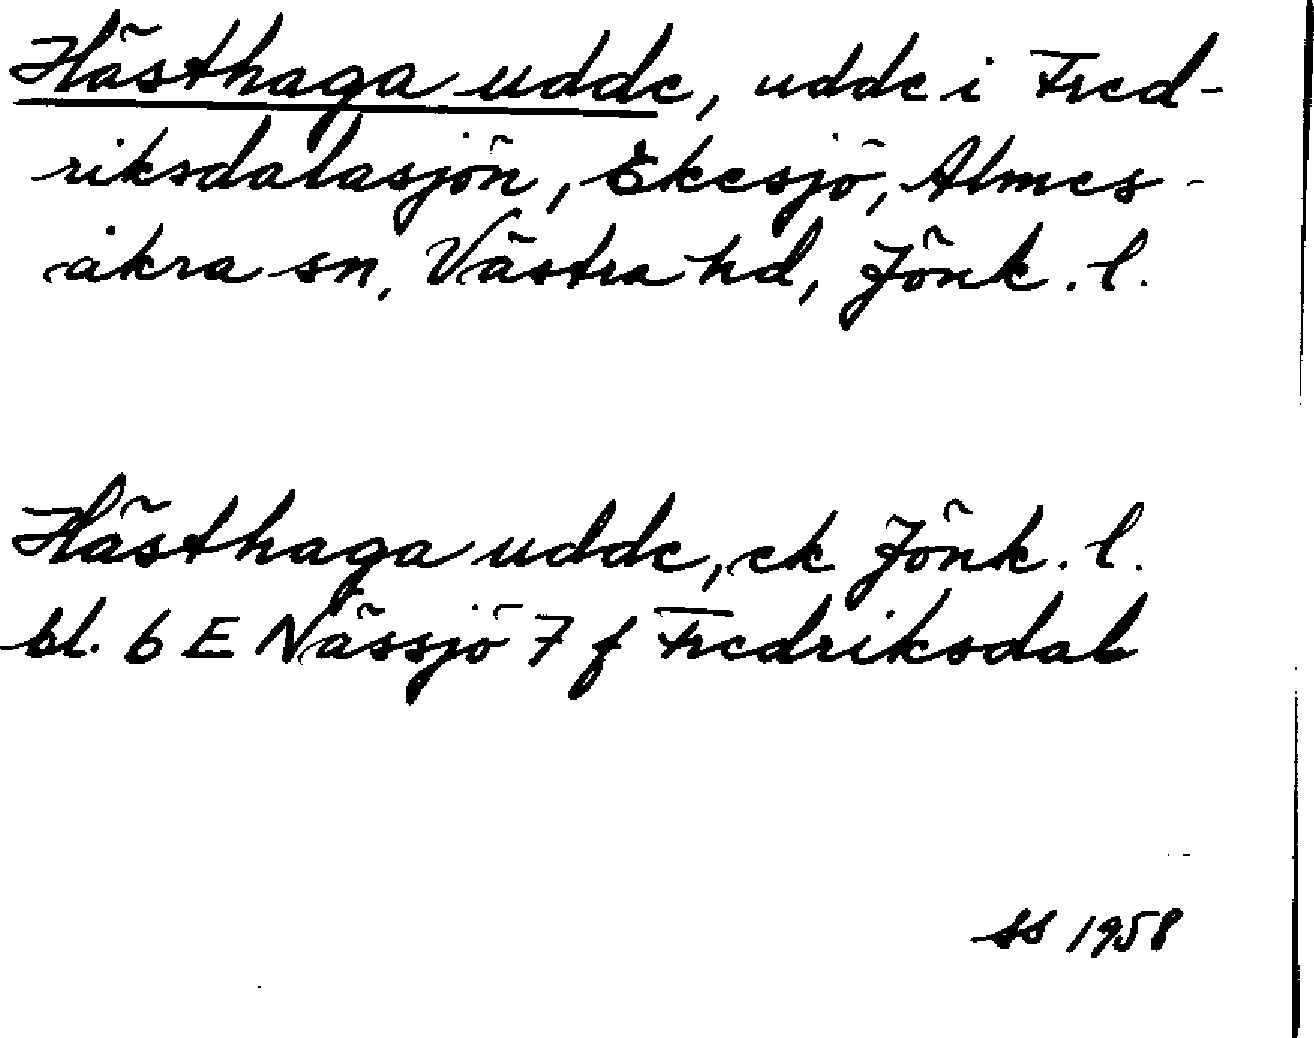 Hästhaga udde, udde i Fred-
riksdalasjön, Ekesjö, Almes-
åkra sn, Västra hd, Jönk. l.
Hästhaga udde, ek Jönk. l.
bl. 6 E Nässjö 7 f Fredriksdal
SS 1958